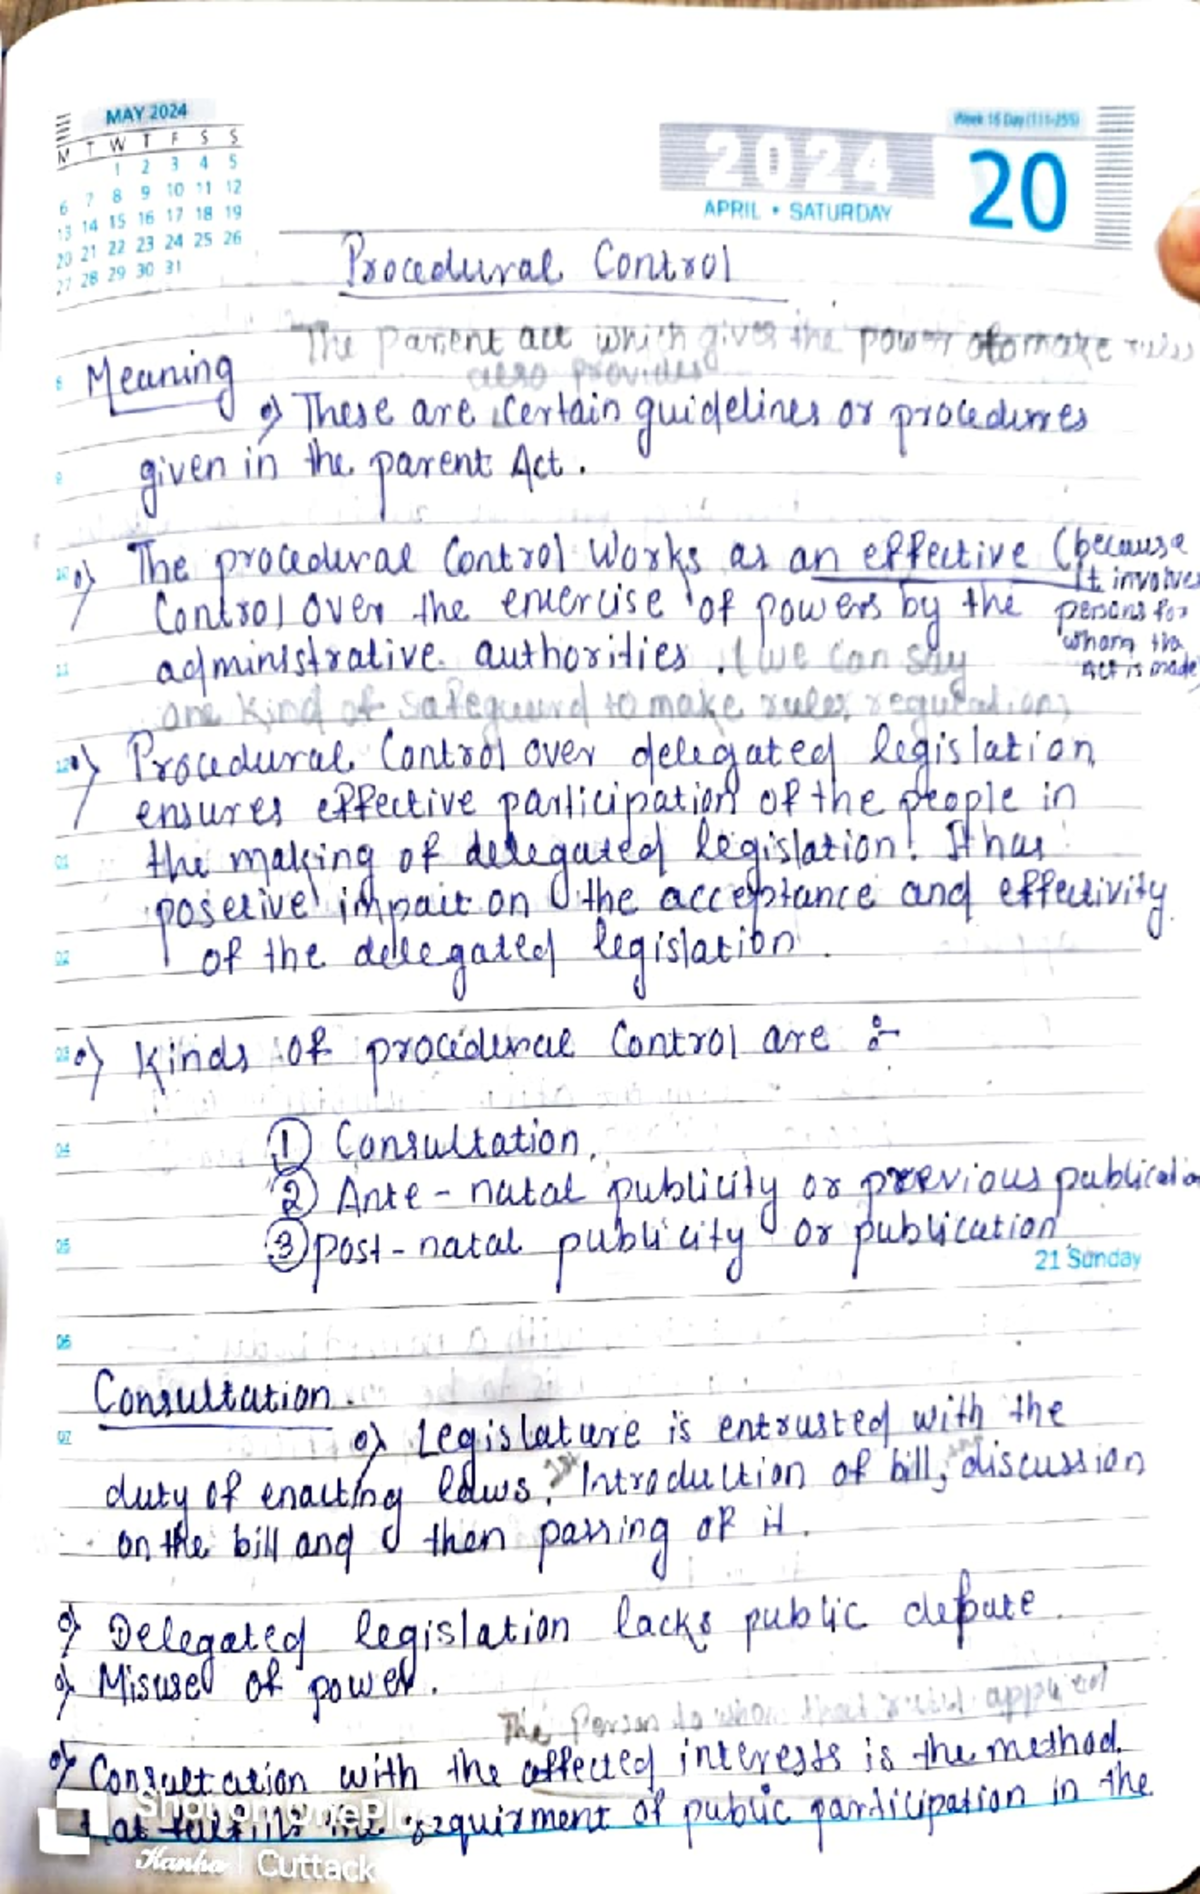 MAY 2024
M T W T F S S
1 2 3 4 5
6 7 8 9 10 11 12
13 14 15 16 17 18 19
20 21 22 23 24 25 26
27 28 29 30 31
2024
APRIL • SATURDAY
Week 16 Day (111-255)
20
Procedural Control
The parent act which gives the power to make rules
also provides
Meaning
These are certain guidelines or procedures
given in the parent Act.
The procedural Control Works as an effective (because
it involves
Control over the enercise of powers by the persons for
whom the
administrative authorities. (we can say Act is made)
one kind of safeguard to make rules, regulations
Procedural Control over delegated legislation
ensures effective participation of the people in
the making of delegated legislation. It has
posetive impact on the acceptance and effectivity
of the delegated legislation.
Kinds of procedural Control are :-
① Consultation.
② Ante-natal publicity or previous publication
③ post-natal publicity or publication
21 Sunday
Consultation.
Legislature is entrusted with the
duty of enacting laws. Introduction of bill, discussion
on the bill and then passing of it.
Delegated legislation lacks public debate.
Misuse of power.
The Person to whom that apply
Consultation with the affected interests is the method
that fulfills the requirment of public participation in the
Shot on OnePlus
Kanha | Cuttack